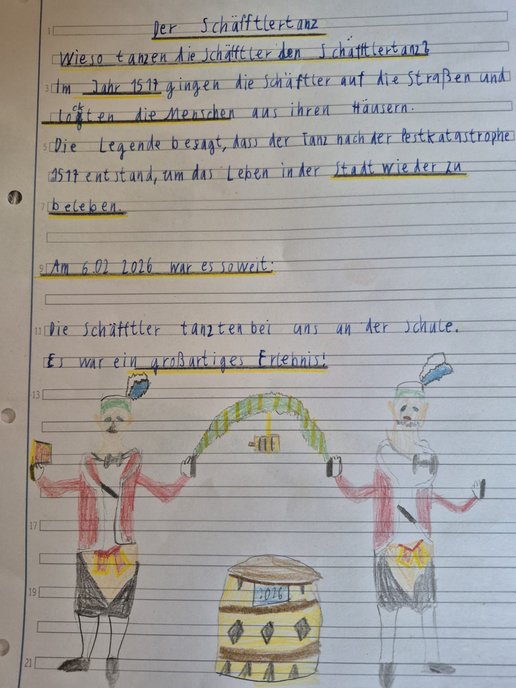 Der Schäfftlertanz
Wieso tanzen die Schäfftler den Schäfftlertanz?
Im Jahr 1517 gingen die Schäftler auf die Straßen und
lockten die Menschen aus ihren Häusern.
Die Legende besagt, dass der Tanz nach der Pestkatastrophe
1517 entstand, um das Leben in der Stadt wieder zu
beleben.
Am 6.02 2026 war es soweit:
Die Schäfftler tanzten bei uns an der Schule.
Es war ein großartiges Erlebnis!
2026